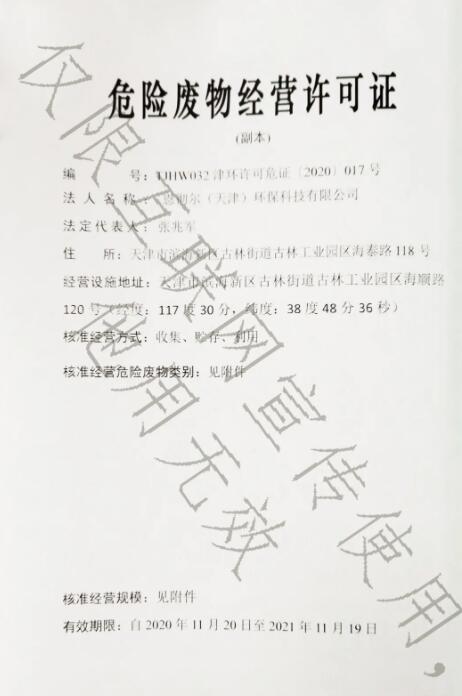 危险废物经营许可证
(副本)
编 号：TJHW032 津环许可危证〔2020〕017 号
法 人 名 称 ：恩彻尔（天津）环保科技有限公司
法 定 代 表 人 ：张兆军
住 所：天津市滨海新区古林街道古林工业园区海泰路 118 号
经营设施地址：天津市滨海新区古林街道古林工业园区海顺路
120 号（经度：117 度 30 分，纬度：38 度 48 分 36 秒）
核准经营方式：收集、贮存、利用
核准经营危险废物类别：见附件
核准经营规模：见附件
有效期限：自 2020 年 11 月 20 日至 2021 年 11 月 19 日
仅限互联网宣传使用，
他用无效